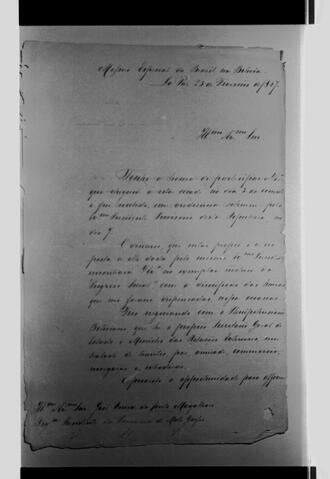 Missão Especial do Brasil na Bolivia
La Paz 23 de Fevereiro de 1867.
Illmo Exmo Snr
Tenho a honra de participar a V.Exª
que cheguei a esta cidade no dia 3 do corrente
e fui recebido, em audiencia solemne, pelo
Exmo Presidente Provisorio desta Republica, no
dia 7.
O discurso, que então proferi e a res
posta a elle dada pelo mesmo Exmo Presidente
encontrará V.Exª no exemplar incluso do
com a descripção das honras
que me foram dispensadas, nessa occasião.
Estou negociando com o Plenipotenciario
Boliviano, que é o proprio Secretario Geral de
Estado e Ministro das Relações Exteriores, um
tratado de limites, paz, amizade, commercio,
navegação e extradição.
Aproveito a opportunidade para offerecer
Illmo Exmo Snr José Vieira do Couto Magalhães
Presidente da Provincia de Mato Grosso